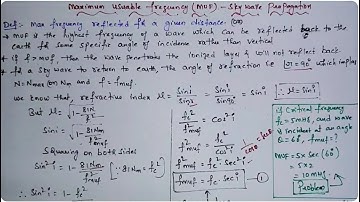 Maximum Usable frequency (MUF) - Sky wave Propagation
Def:- Max frequency reflected for a given distance (or)
* MUF is the highest frequency of a wave which can be reflected back to the
earth for some specific angle of incidence rather than vertical
* if f > MUF, then the wave penetrates the ionized layer & will not reflect back.
* for a sky wave to return to earth, The angle of refraction i.e r = 90° which implies
N = Nmax (or) Nm and f = fmuf.
we know that, refractive index μ = Sini / Sinr = Sini / Sin90° = Sini
∴ μ = Sini
But μ = √1 - 81N / f²
= √1 - 81Nm / f²muf
Squaring on both sides
Sin²i = 1 - 81Nm / f²muf [∵ 81Nm = fc²]
∴ Sin²i = 1 - fc² / f²muf
f²muf = fc² / Cos²i
f²muf = fc² Sec²i
fmuf = fc Sec i
1
if Critical frequency
fc = 5MHz, and wave
is incident at an angle
MUF = 5 x Sec (60°)
= 5x2
= 10MHz
Problem